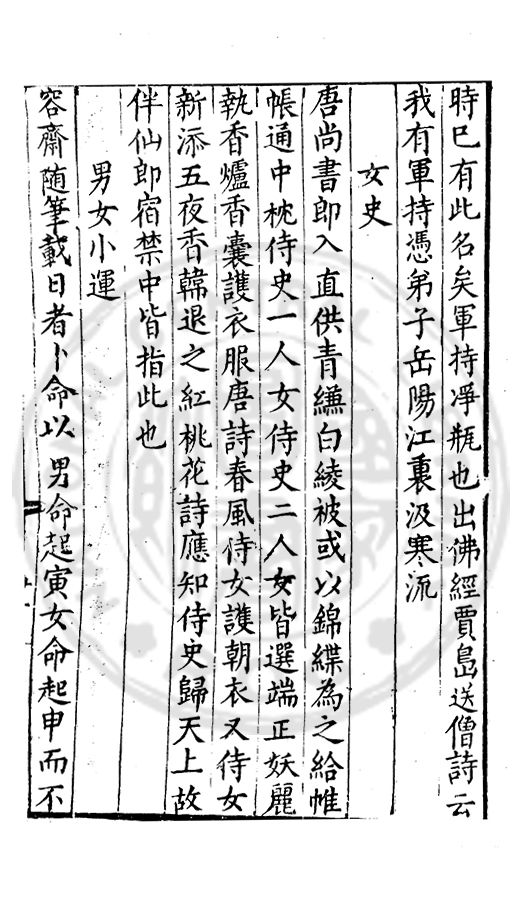 時已有此名矣軍持凈瓶也出佛經賈島送僧詩云
我有軍持憑弟子岳陽江裏汲寒流
女史
唐尚書郎入直供青縑白綾被或以錦緤為之給帷
帳通中枕侍史一人女侍史二人女皆選端正妖麗
執香爐香囊護衣服唐詩春風侍女護朝衣又侍女
新添五夜香韓退之紅桃花詩應知侍史歸天上故
伴仙郎宿禁中皆指此也
男女小運
容齋随筆載日者卜命以男命起寅女命起申而不